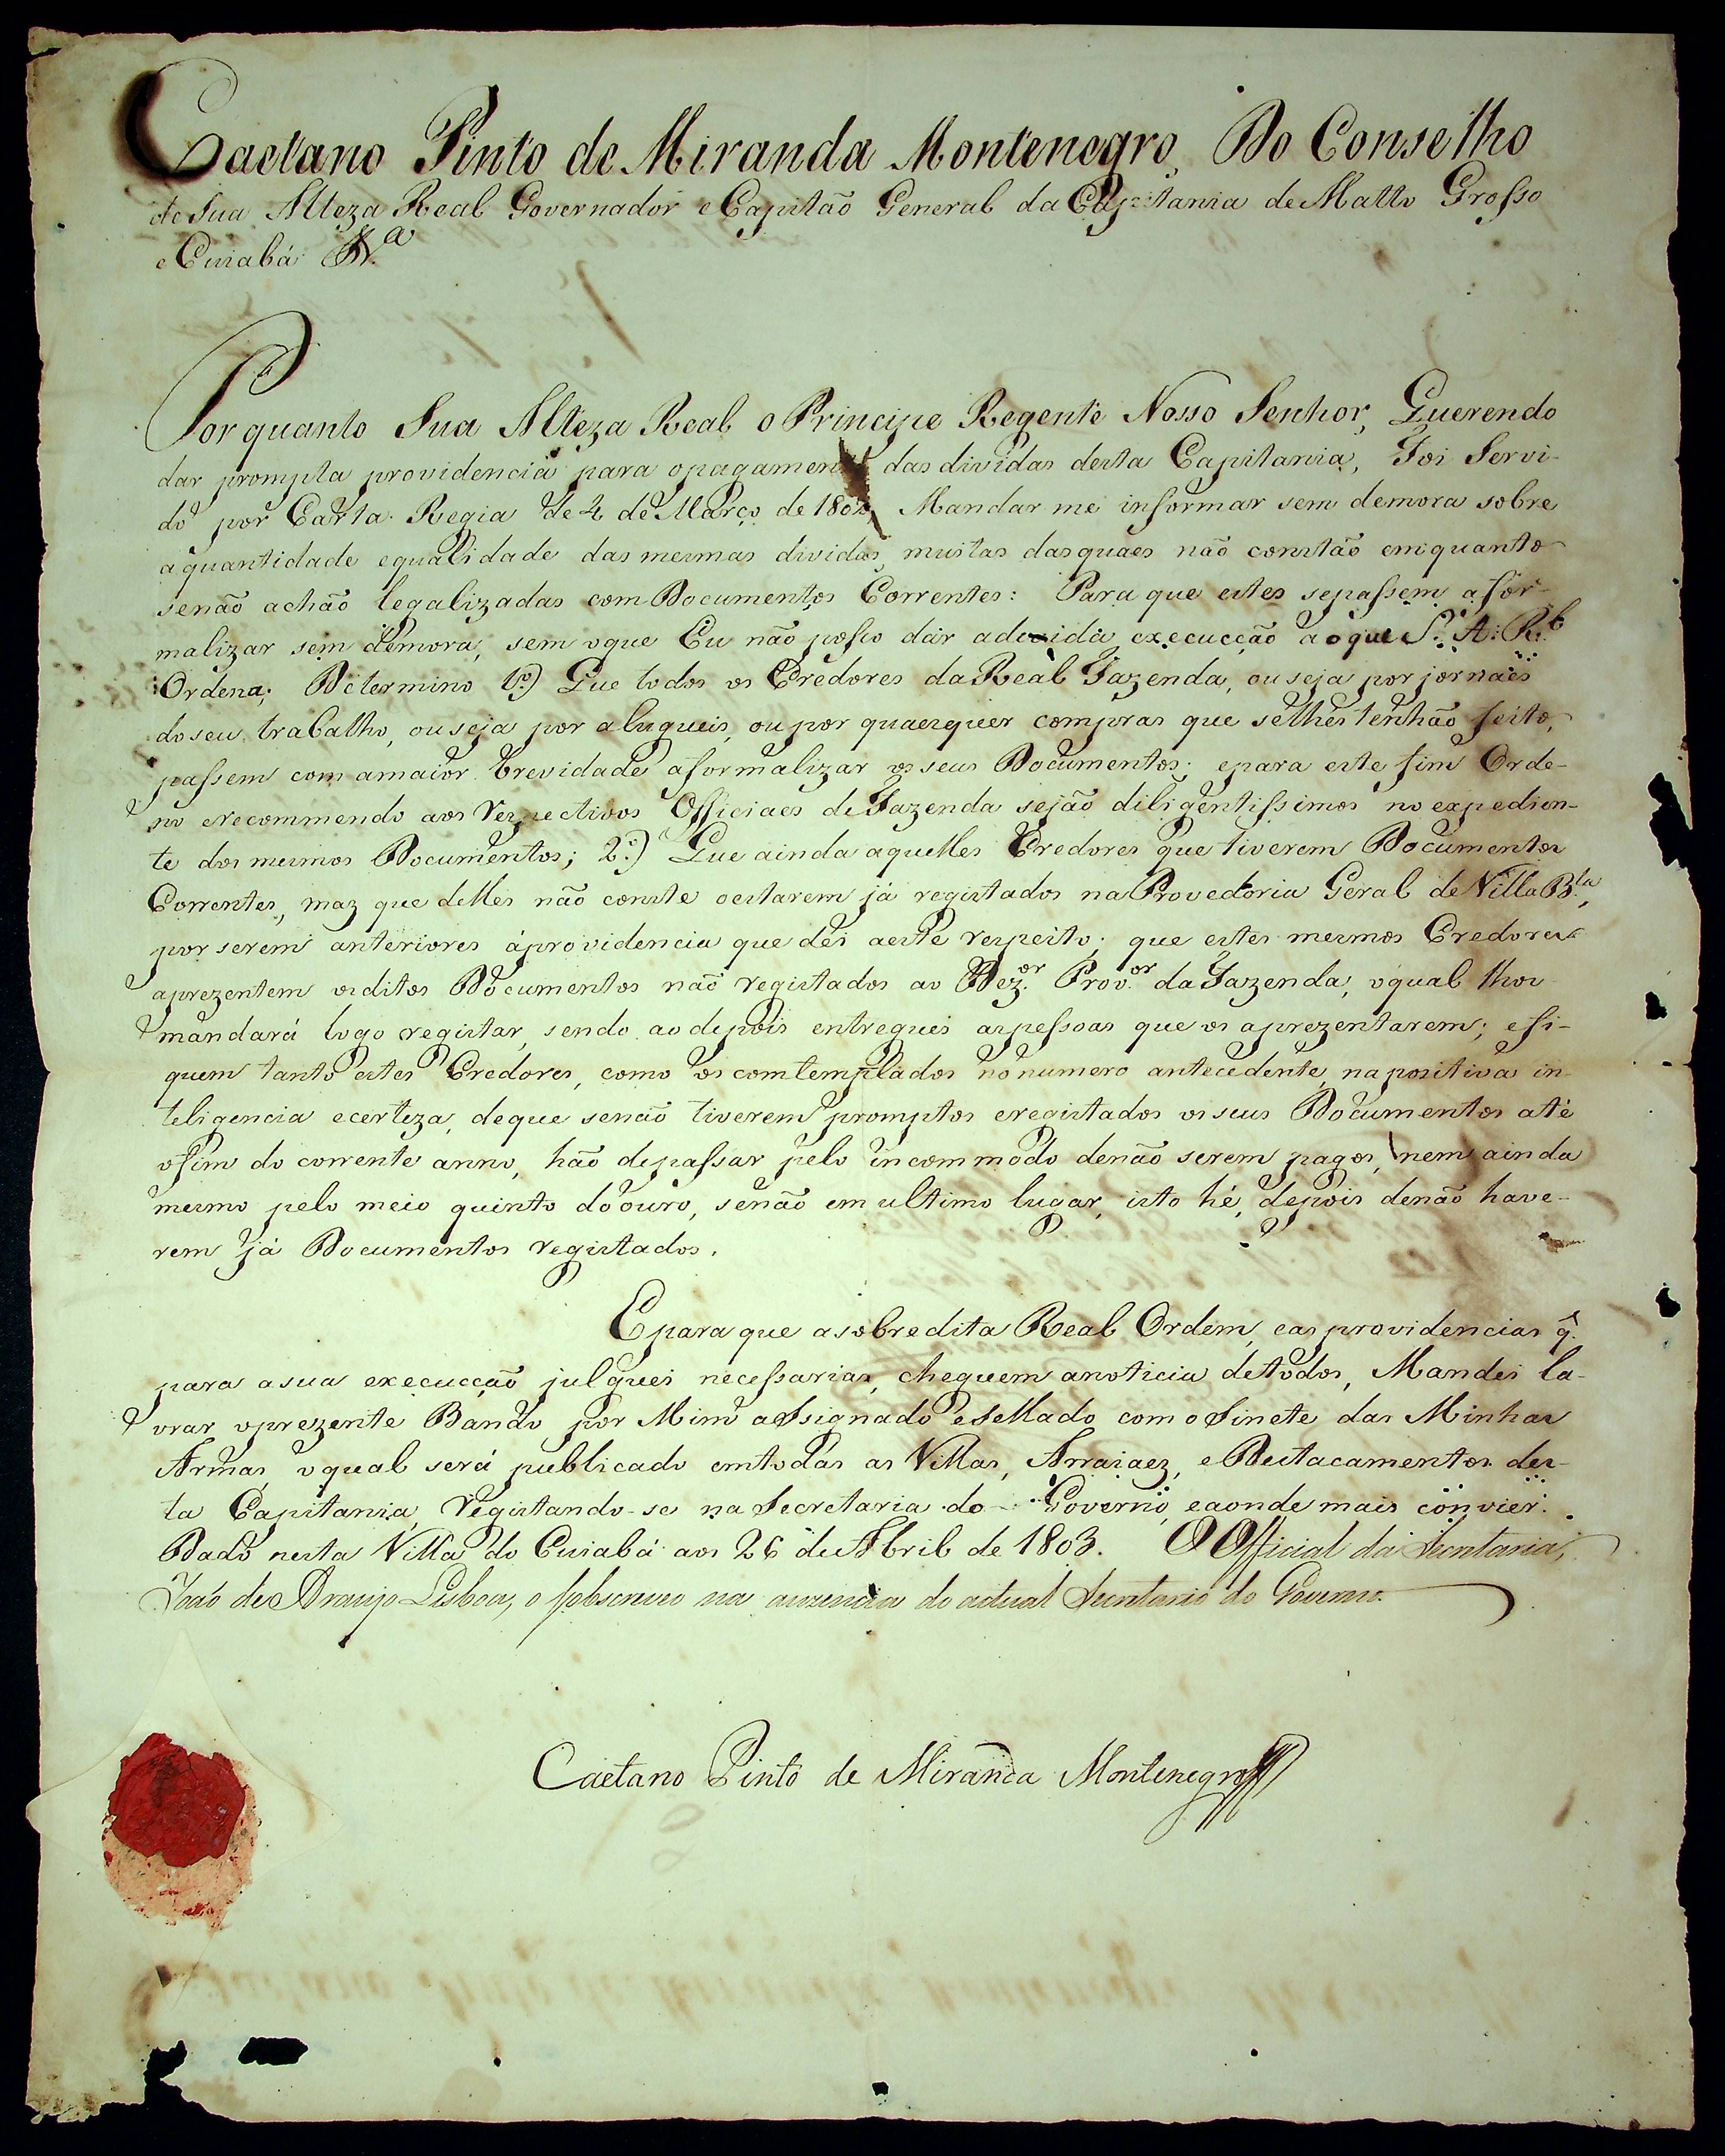 Caetano Pinto de Miranda Montenegro, Do Conselho
de Sua Alteza Real Governador e Capitão General da Capitania de Matto Grosso
e Cuiabá &.ª
Porquanto Sua Alteza Real o Principe Regente Nosso Senhor, Querendo
dar prompta providencia para opagamento das dividas desta Capitania, Foi Servi-
do por Carta Regia de 4 de Março de 1802, Mandar me informar sem demora sobre
aquantidade equalidade das mesmas dividas, muitas dasquaes não constão emquanto
senão achão legalizadas com Documentos Correntes: Para que estes sepassem afor-
malizar sem demora, sem oque Eu não posso dár adevida execucção ao que S. A. R.l
Ordena; Determino 1.º) Que todos os Credores da Real Fazenda, ou seja por jornaes
do seu trabalho, ou seja por alugueis, ou por quaesquer compras que selhes tenhão feito,
passem com amaior brevidade aformalizar os seus Documentos; epara este fim Orde-
no erecommendo aos respectivos Officiaes de Fazenda sejão diligentissimos no expedien-
te dos mesmos Documentos; 2.º) Que ainda aquelles Credores que tiverem Documentos
Correntes, maz que delles não conste oestarem já registados na Provedoria Geral de Villa B.la,
por serem anteriores áprovidencia que dei aeste respeito; que estes mesmos Credores
aprezentem osditos Documentos não registados ao Dez.or Prov.or da Fazenda, oqual lhos
mandará logo registar, sendo ao depois entregues aspessoas que os aprezentarem; efi-
quem tanto estes Credores, como os comtemplados nonumero antecedente, na positiva in-
teligencia ecerteza, deque senão tiverem promptos eregistados osseus Documentos até
ofim do corrente anno, hão depassar pelo incommodo denão serem pagos, nem ainda
mesmo pelo meio quinto do ouro, senão em ultimo lugar, isto hé, depois denão have-
rem já Documentos registados.
Epara que asobredita Real Ordem, eas providencias q̃.
para asua execucção julguei necessarias, cheguem anoticia detodos, Mandei la-
vrar oprezente Bando por Mim assignado esellado com o Sinete das Minhas
Armas, oqual será publicado emtodas as Villas, Arraiaez, e Destacamentos des-
ta Capitania, registando-se na Secretaria do Governo, eaonde mais convier.
Dado nesta Villa do Cuiabá aos 26 de Abril de 1803. O Official da Secretaria,
João de Araujo Lisboa, o sobscreveo na auzencia do actual Secretario do Governo.
Caetano Pinto de Miranda Montenegro